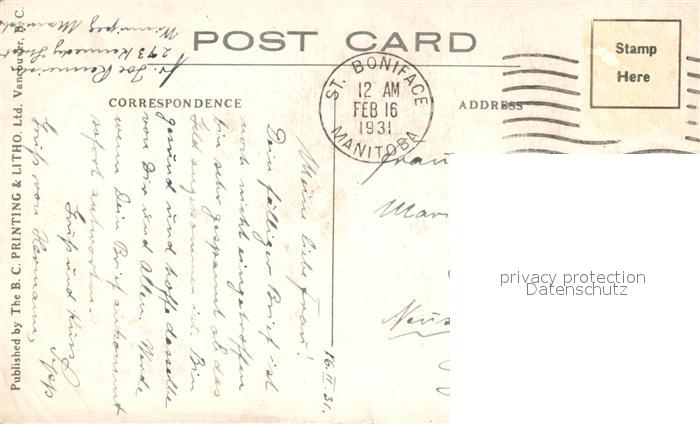 POST CARD
Stamp
Here
ST. BONIFACE
12 AM
FEB 16
1931
MANITOBA
CORRESPONDENCE
ADDRESS
Published by The B. C. PRINTING & LITHO. Ltd. Vancouver, B. C.
Joe
273 Kennedy Street
Winnipeg
16.II.31.
Meine liebe Frau!
Dein fälliger Brief ist
noch nicht eingetroffen
bin sehr gespannt ob das
Geld angekommen ist. Bin
gesund und hoffe dasselbe
von Dir und Allen. Werde
wenn Dein Brief ankommt
sofort antworten.
Gruß und Kuss
Sepp
Gruß von Hermann,
Frau
Mar
Neus
privacy protection
Datenschutz